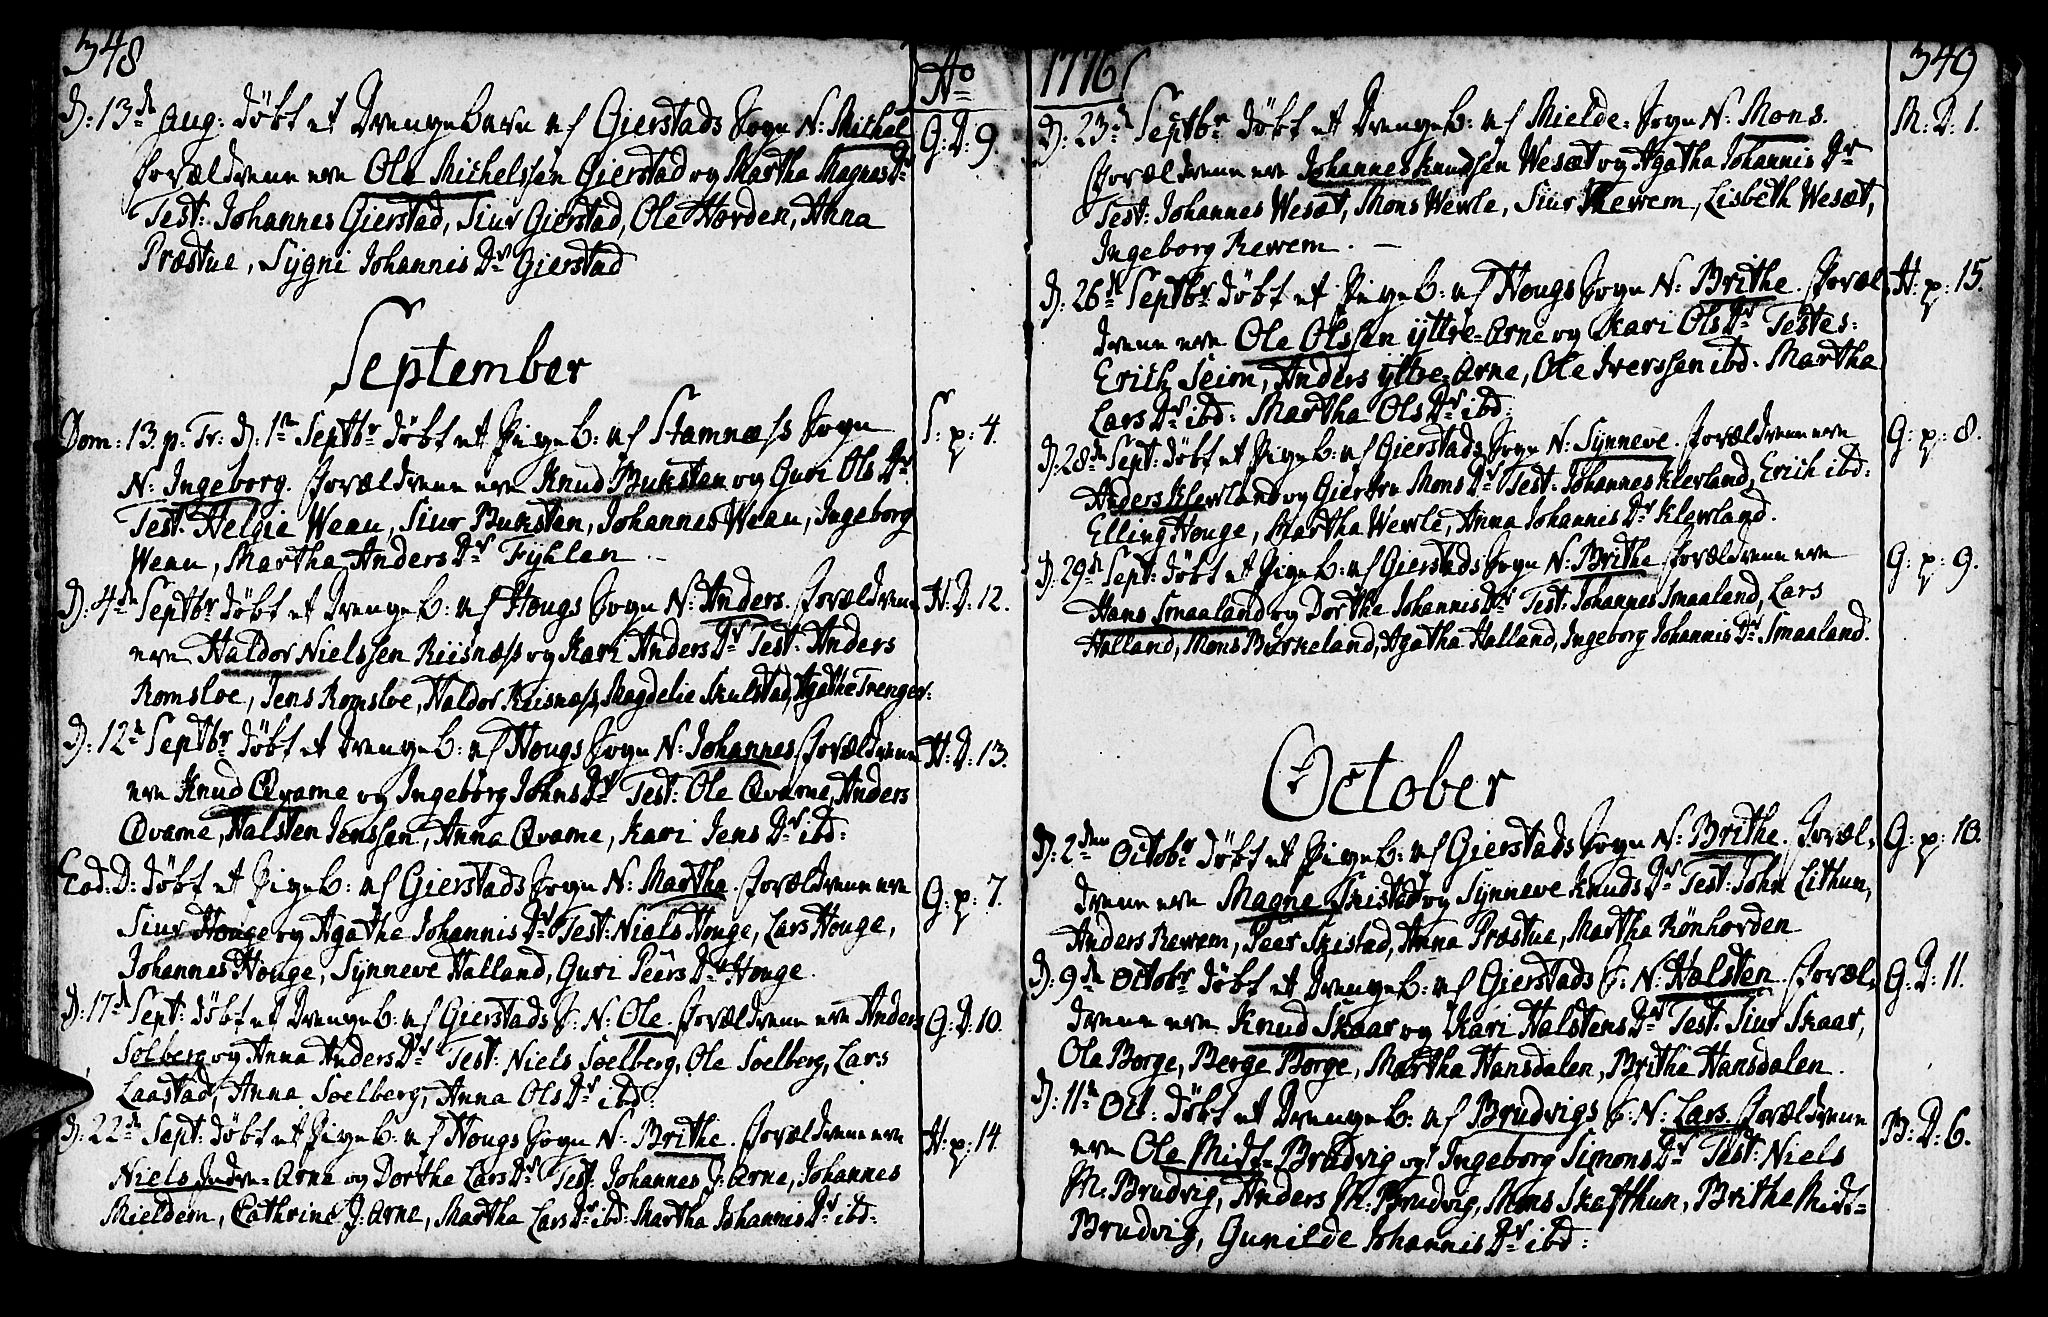 348
No
D: 13de Aug: döbt et Drengebarn af Gierstads Sogn N: Michel
G: D: 9.
Forældrene ere Ole Michelssen Gierstad og Martha Magnes Dr
Test: Johannes Gierstad, Siur Gierstad, Ole Horden, Anna
Præstue, Sygni Johannis Dr Gierstad
September
Dom: 13. p. Tr: D: 1te Septbr döbt et Pigeb: af Stamnæss Sogn
S: p: 4.
N: Ingeborg. Forældrene ere Knud Buksten og Guri Ols Dr
Test: Helgie Weau, Siur Buksten, Johannes Weau, Ingeborg
Weau, Martha Anders Dr Fyhlen
D: 4de Septbr döbt et Drengeb: af Hougs Sogn N: Anders. Forældrene
H: D: 12.
ere Haldor Nielssen Riisnæss og Kari Anders Dr Test: Anders
Romsloe, Jens Romsloe, Haldor Riisnæss, Magdelie Skulstad, Agathe Trenger:
D: 12te Septbr döbt et Drengeb: af Hougs Sogn N: Johannes. Forældrene
H: D: 13.
ere Knud Qvame og Ingeborg Johns Dr Test: Ole Qvame, Anders
Qvame, Halsten Jenssen, Anna Qvame, Kari Jens Dr ibd:
Eod: D: döbt et Pigeb: af Gierstads Sogn N: Martha. Forældrene ere
G: p: 7.
Siur Houge og Agathe Johannis Dr Test: Niels Houge, Lars Houge,
Johannes Houge, Synneve Halland, Guri Peers Dr Houge.
D: 17de Sept: döbt et Drengeb: af Gierstads S: N: Ole. Forældrene ere Anders
G: D: 10.
Solberg og Anna Anders Dr Test: Niels Soelberg, Ole Soelberg, Lars
Laastad, Anna Soelberg, Anna Ols Dr ibd:
D: 22de Sept: döbt et Pigeb: af Hougs Sogn N: Brithe. Forældrene ere
H: p: 14.
Niels Indre-Arne og Dorthe Lars Dr Test: Johannes J: Arne, Johannes
Mieldem, Cathrine J: Arne, Martha Lars Dr ibd: Martha Johannis Dr ibd:
1776
349
D: 23de Septbr döbt et Drengeb: af Mielde-Sogn N: Mons.
M: D: 1.
Forældrene ere Johannes Knudsen Wesæt og Agatha Johannis Dr
Test: Johannes Wesæt, Mons Wevle, Siur Rewem, Lisbeth Wesæt,
Ingeborg Rewem.
D: 26de Septbr döbt et Pigeb: af Hougs Sogn N: Brithe. Foræl-
H: p: 15.
drene ere Ole Olssen yttre-Arne og Kari Ols Dr Testes:
Erich Seim, Anders yttre-Arne, Ole Iverssen ibd. Martha
Lars Dr ibd: Martha Ols Dr ibd:
D: 28de Sept: döbt et Pigeb: af Gierstads Sogn N: Synneve. Forældrene ere
G: p: 8.
Anders Klevland og Giertru Mons Dr Test: Johannes Klevland, Erich ibd:
Elling Houge, Martha Wevle, Anna Johannis Dr Klevland.
D: 29de Sept: döbt et Pigeb: af Gierstads Sogn N: Brithe. Forældrene ere
G: p: 9.
Hans Smaaland og Dorthe Johannis Dr Test: Johannes Smaaland, Lars
Halland, Mons Birkeland, Agatha Halland, Ingeborg Johannis Dr Smaaland.
October
D: 2den Octobr döbt et Pigeb: af Gierstads Sogn N: Brithe. Foræl-
G: p: 10.
drene ere Magne Skistad og Synneve Knuds Dr Test: John Lithun,
Anders Rewem, Peer Skistad, Anna Præstue, Martha Rönhorden
D: 9de Octobr döbt et Drengeb: af Gierstads S: N: Halsten. Foræl-
G: D: 11.
drene ere Knud Skaar og Kari Halstens Dr Test: Siur Skaar,
Ole Borge, Berge Borge, Martha Hansdalen, Brithe Hansdalen.
D: 11te Oct: döbt et Drengeb: af Brudvigs S: N: Lars. Forældrene
B: D: 6.
ere Ole Midt-Brudvig og Ingeborg Simons Dr Test: Niels
M: Brudvig, Anders M: Brudvig, Mons Skafthun, Brithe Midt-
Brudvig, Gunilde Johannis Dr ibd: